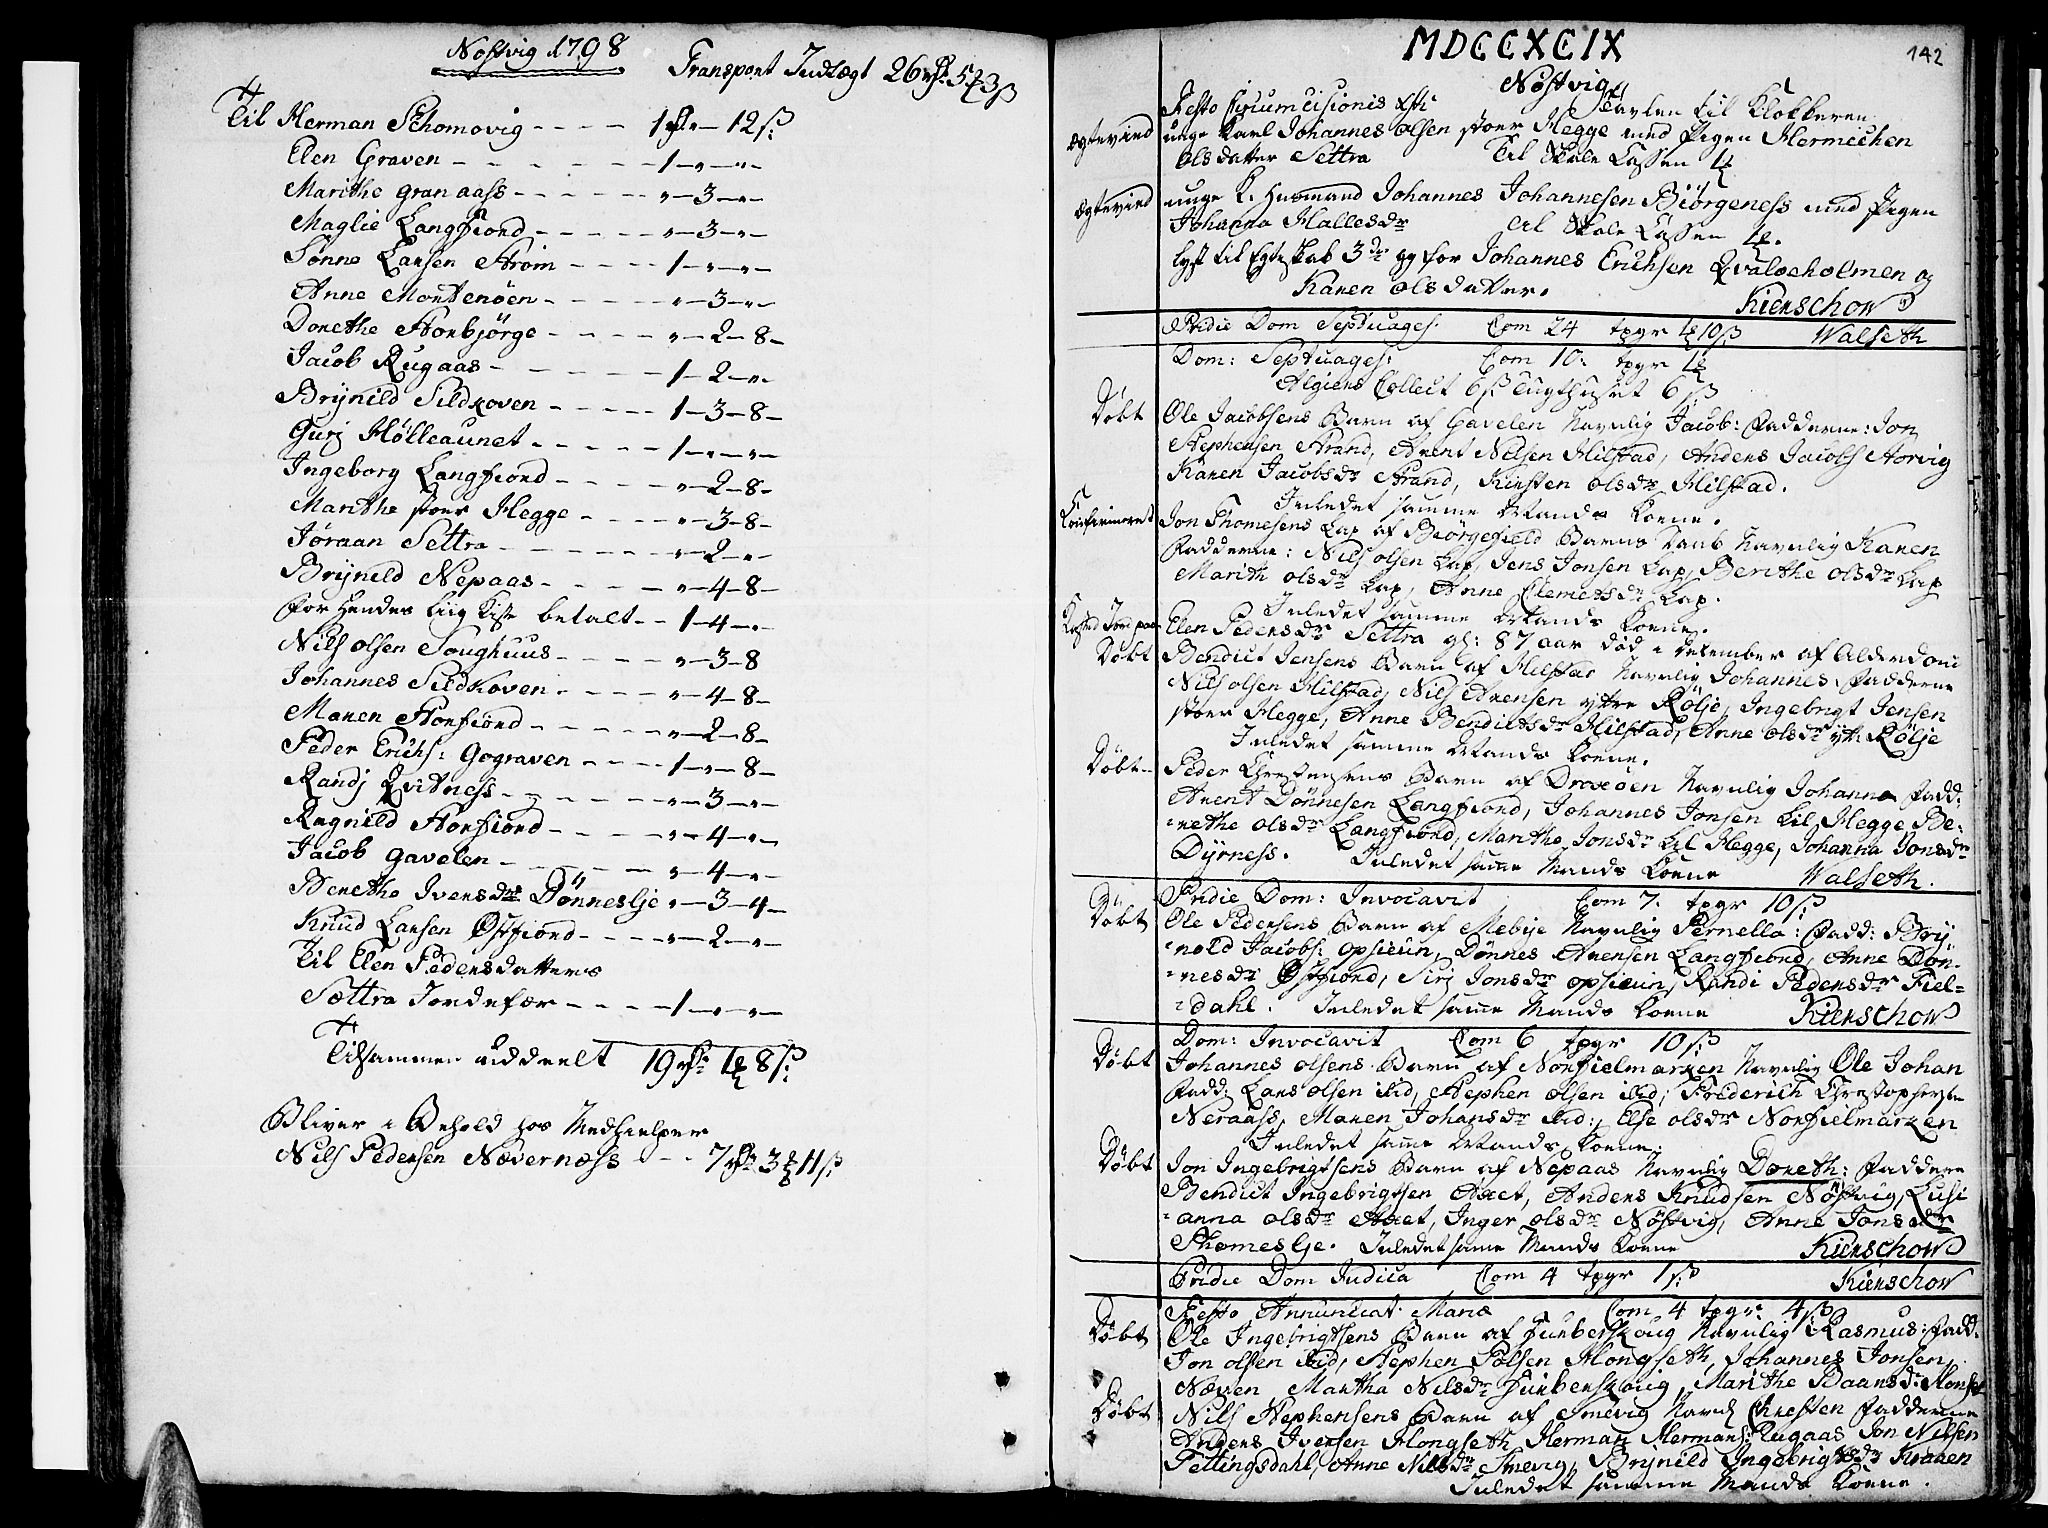 Nøstvig 1798
Transport Indtægt 26 5 3ß
Til Herman Schomovig - - - - 1 - 12ß
Elen Graven - - - - - - 1 - " - " -
Marithe Granaass - - - - - " - 3 - " -
Maglie Langfiord - - - - - " - 3 - " -
Sønne Larsen Strøm - - - - 1 - " - " -
Anne Mortenøen - - - - - " - 3 - " -
Dorethe Storbjørge - - - - " - 2 - 8 -
Jacob Rugaas - - - - - - 1 - 2 - " -
Brynild Sildkoven - - - - - 1 - 3 - 8 -
Gurj Hølleaunet - - - - - 1 - " - " -
Ingeborg Langfiord - - - - " - 2 - 8 -
Marithe stoer Hegge - - - - " - 3 - 8 -
Jøraan Settra - - - - - - " - 2 - " -
Brynild Nepaas - - - - - " - 4 - 8 -
for hendes Liig Kiste betalt - - 1 - 4 - " -
Nils Olsen Soughuus - - - - " - 3 - 8
Johannes Sildkoven - - - - " - 4 - 8 -
Maren Storfiord - - - - - " - 2 - 8 -
Peder Erichs: Gograven - - - - 1 - " - 8 -
Randj Qvitness - - - - - - " - 3 - " -
Ragnild Storfiord - - - - - " - 4 - " -
Jacob Gavelen - - - - - - " - 4 - " -
Berethe Iversdr Dønneslje " - 3 - 4 -
Knud Larsen Østfiord - - - - " - 2 - " -
Til Elen Pedersdatters
Sættra Jordefær - - - - 1 - " - " -
Tilsammen uddeelt 19 1 8ß
Bliver i Behold hos Medhielper
Nils Pedersen Næverness - - - 7 3 11ß
MDCCXCIX
142
Nøstvig
Festo Circumcisionis Tavlen til Klokkeren
Ægtevied unge Karl Johannes Olsen stoer Hegge med Pigen Hermichen
Olsdatter Settra Til Skole Cassen
Ægtevied unge K. Husmand Johannes Johannesen Biørgeness med Pigen
Johanna Hallesdr til Skole Cassen
Lyst til Egteskab 3de gg for Johannes Erichsen Qvaloeholmen og
Karen Olsdatter.
Kierschow
Pridie Dom Septuages: Com 24 tpgr 10ß Walseth
Dom: Septuages: Com 10: tpgr
Algiers Collect 6ß Tugthuset 6ß
Døbt Ole Jacobsens Barn af Gavelen Navnlig Jacob: Fadderne: Jon
Stephensen Strand, Arent Nilsen Hilstad, Anders Jacobs Storvig
Karen Jacobsdr Strand, Kirsten Olsdr Hilstad.
Inledet samme Mands Koene.
Confirmeret Jon Thomesens Lap af Biørgefield Barns Daab Navnlig Karen
Fadderne: Nils Olsen Lap, Jens Jonsen Lap, Berithe Olsdr Lap
Marith Olsdr Lap, Anne Clemetsdr Lap.
Inledet samme Mands Koene.
Kasted Jord paa Elen Pedersdr Settra gl: 87 aar død i December af Alderdom
Døbt Bendict Jensens Barn af Hilstad Navnlig Johannes, Fadderne
Nils Olsen Hilstad, Nils Arensen ytre Kølje, Ingebrigt Jensen
stoer Hegge, Anne Bendictsdr Hilstad, Anne Olsdr yt: Kølje
Inledet samme Mands Koene.
Døbt Peder Christensens Barn af Droxøen Navnlig Johanna Fadd:
Arent Dønnesen Langfiord, Johannes Jonsen Lil Hegge Be:
:rethe Olsdr Langfiord, Marithe Jonsdr Lil Hegge, Johanna Jonsdr
Dyrness. Inledet samme Mands Koene Walseth.
Pridie Dom: Invocavit Com 7. tpgr 10ß
Døbt Ole Pedersens Barn af Mebye Navnlig Pernella: Fadd: Bry
:nold Jacobs: Opsieun, Dønnes Arensen Langfiord, Anne Døn:
:nesdr Østfiord, Sirj Jonsdr Opsieun, Randi Pedersdr Fiel:
:dahl. Inledet samme Mands Koene Kierschow
Dom: Invocavit Com 6 tpgr 10ß
Døbt Johannes Olsens Barn af Norfielmarken Navnlig Ole Johan
Fadd: Lars Olsen ibid, Stephen Olsen ibid, Friderich Christophersen
Neraass, Maren Johansdr ibid:, Else Olsdr Norfielmarken
Inledet samme Mands Koene.
Døbt Jon Ingebrigtsens Barn af Nepaas Navnlig Doreth: Faddere
Bendict Ingebrigtsen Aaet, Anders Knudsen Nøstvig, Lusi
:anna Olsdr Aaet, Inger Olsdr Nøstvig, Anne Jonsdr
Thomeslje. Inledet samme Mands Koene Kierschow
Pridie Dom Judica Com 4 tpgr 1ß Kierschow
Festo Annunciat: Mariæ Com 4 tpgr: 4ß
Døbt Ole Ingebrigtsens Barn af Furberskoug Navnlig Rasmus: Fadd:
Jon Olsen ibid, Stephen Polsen Hongseth, Johannes Jonsen
Næven, Martha Nilsdr Furberskoug, Marithe Baarsdr Honset
Døbt Nils Stephensens Barn af Smevig Navnl Chresten Fadderne
Anders Iversen Hongseth, Herman Hermans: Rugaas Jon Nilsen
Pettingsdahl, Anne Nilsdr Smevig, Brynild Ingebrigtsdr Kraaen
Inledet samme Mands Koene.